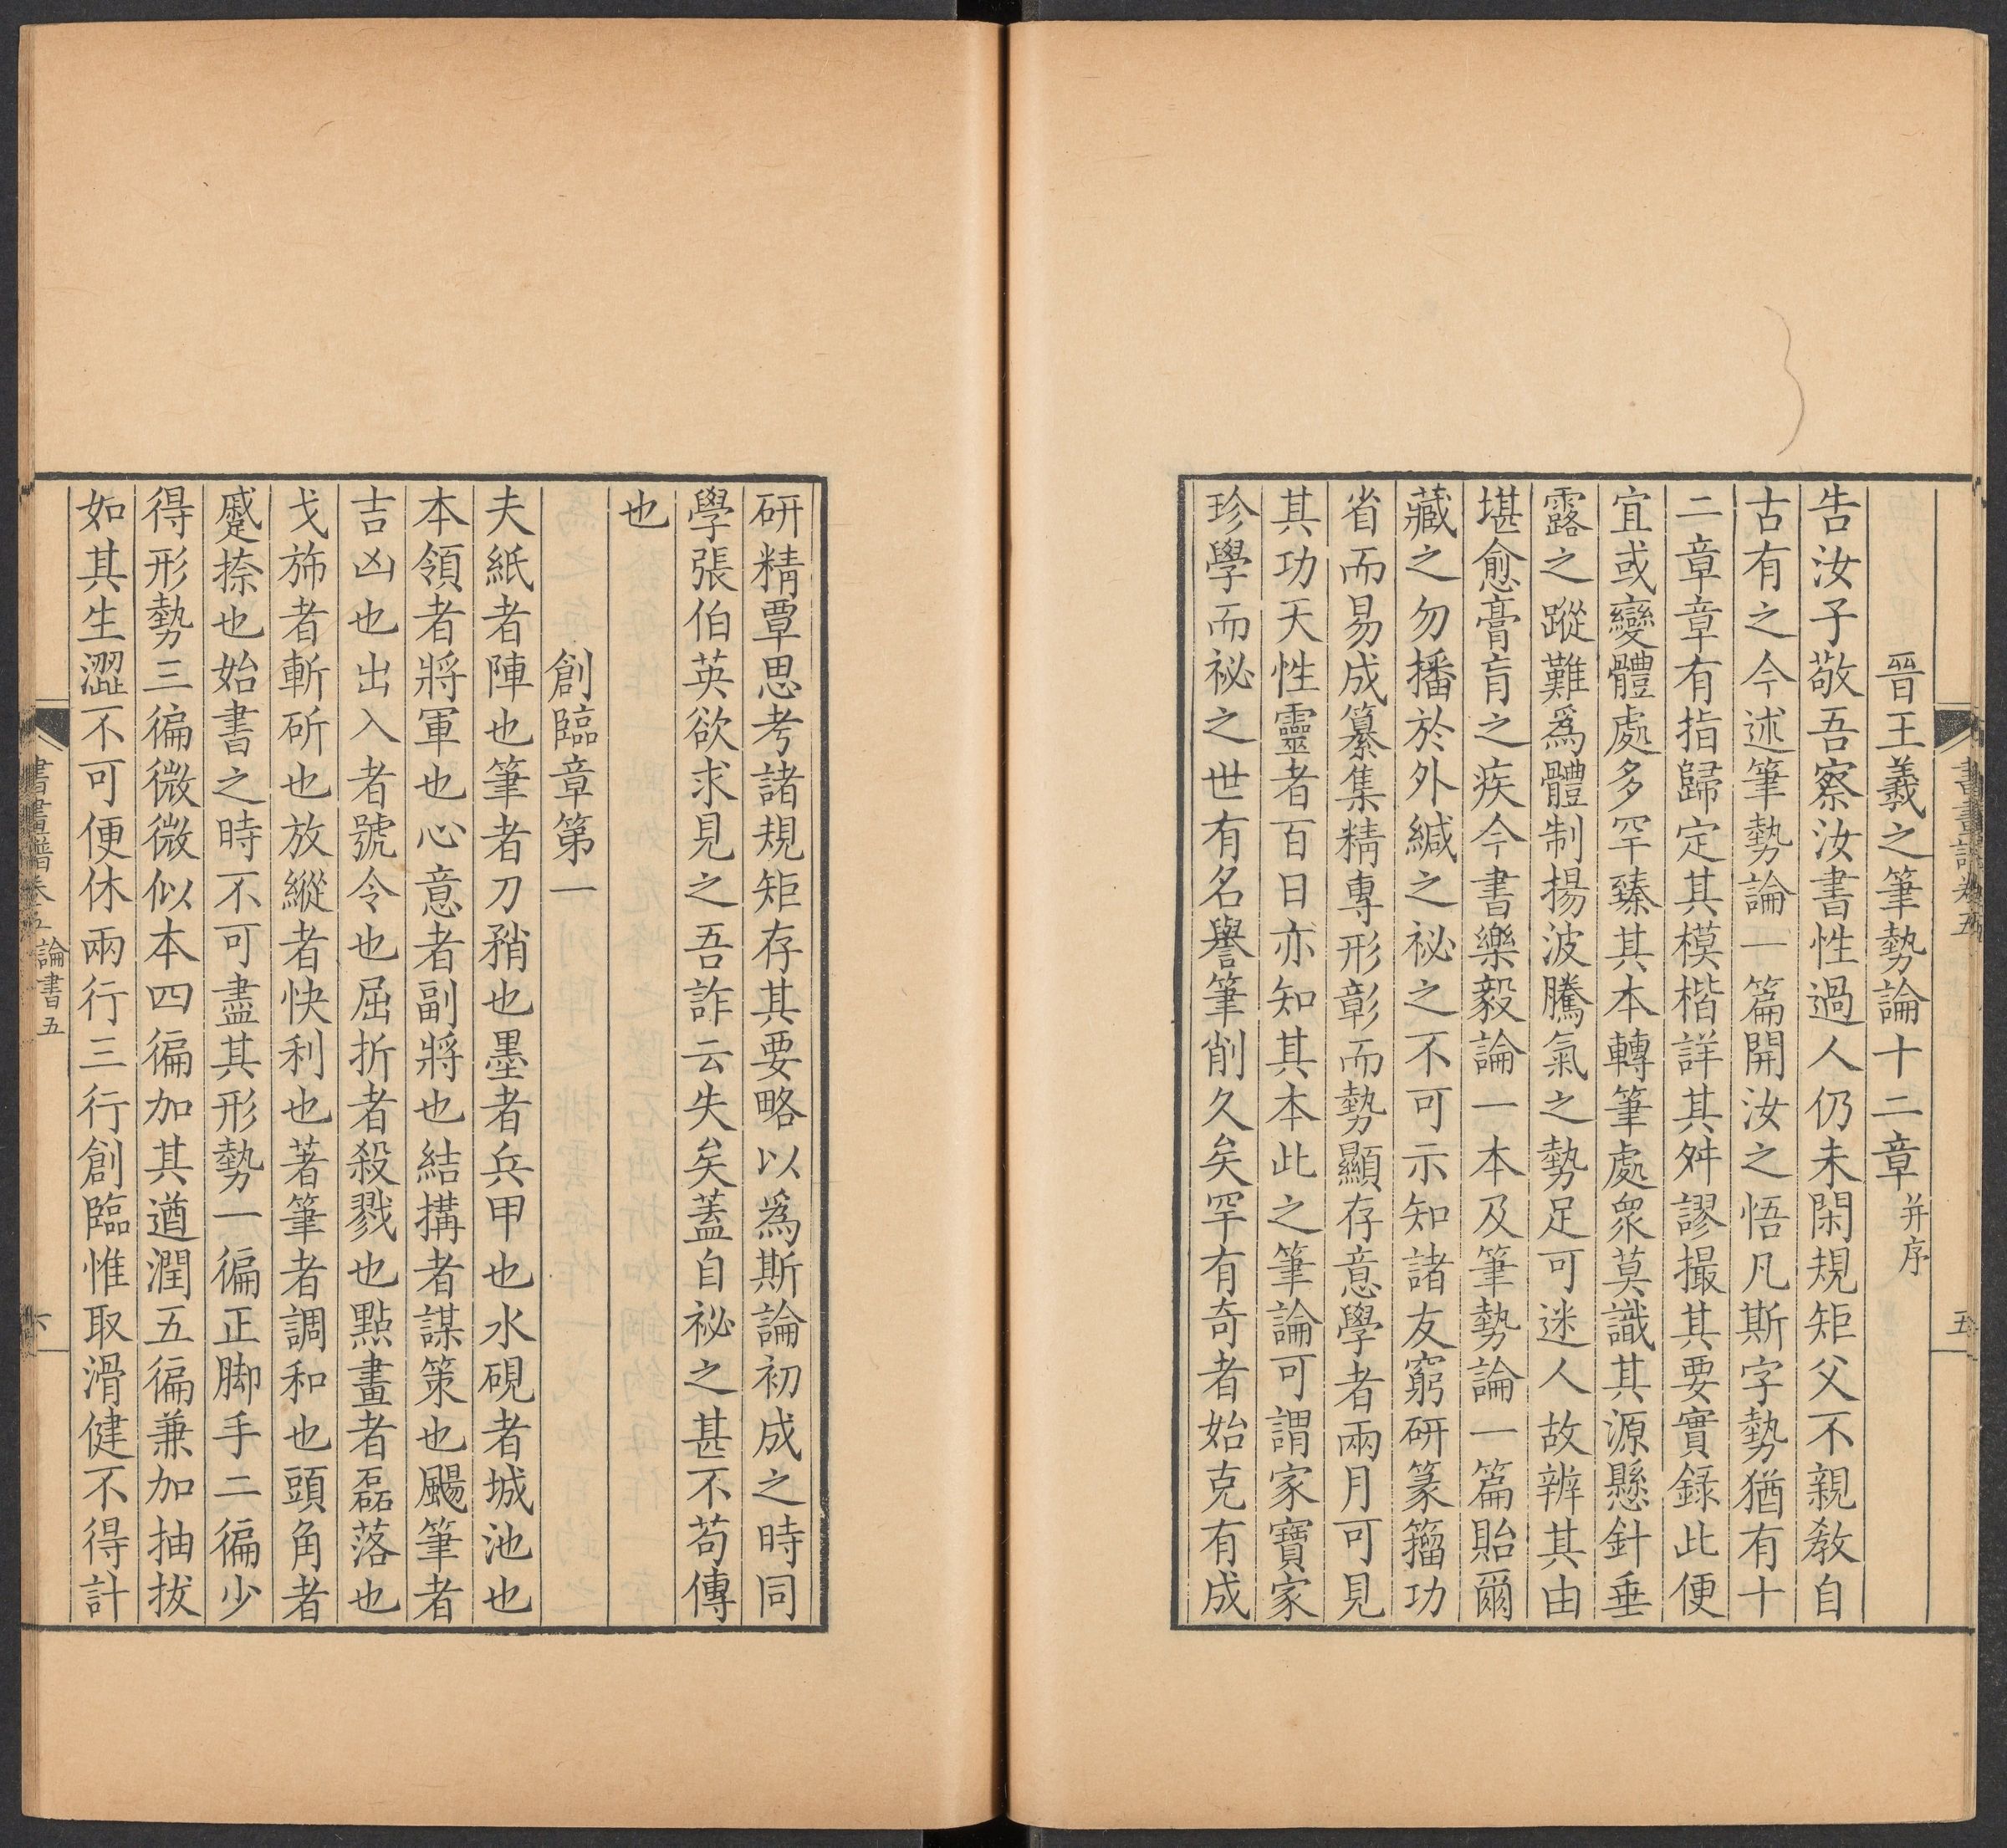 書畫譜卷五
五
晉王羲之筆勢論十二章并序
告汝子敬吾察汝書性過人仍未閑規矩父不親教自
古有之今述筆勢論一篇開汝之悟凡斯字勢猶有十
二章章有指歸定其模楷詳其舛謬撮其要實錄此便
宜或變體處多罕臻其本轉筆處眾莫識其源懸針垂
露之蹤難爲體制揚波騰氣之勢足可迷人故辨其由
堪愈膏肓之疾今書樂毅論一本及筆勢論一篇貽爾
藏之勿播於外緘之祕之不可示知諸友窮研篆籀功
省而易成纂集精專形彰而勢顯存意學者兩月可見
其功天性靈者百日亦知其本此之筆論可謂家寶家
珍學而祕之世有名譽筆削久矣罕有奇者始克有成
研精覃思考諸規矩存其要略以爲斯論初成之時同
學張伯英欲求見之吾詐云失矣蓋自祕之甚不苟傳
也
創臨章第一
夫紙者陣也筆者刀矟也墨者兵甲也水硯者城池也
本領者將軍也心意者副將也結搆者謀策也颺筆者
吉凶也出入者號令也屈折者殺戮也點畫者磊落也
戈斾者斬斫也放縱者快利也著筆者調和也頭角者
蹙捺也始書之時不可盡其形勢一徧正脚手二徧少
得形勢三徧微微似本四徧加其遒潤五徧兼加抽拔
如其生澀不可便休兩行三行創臨惟取滑健不得計
書畫譜卷五 論書五
六